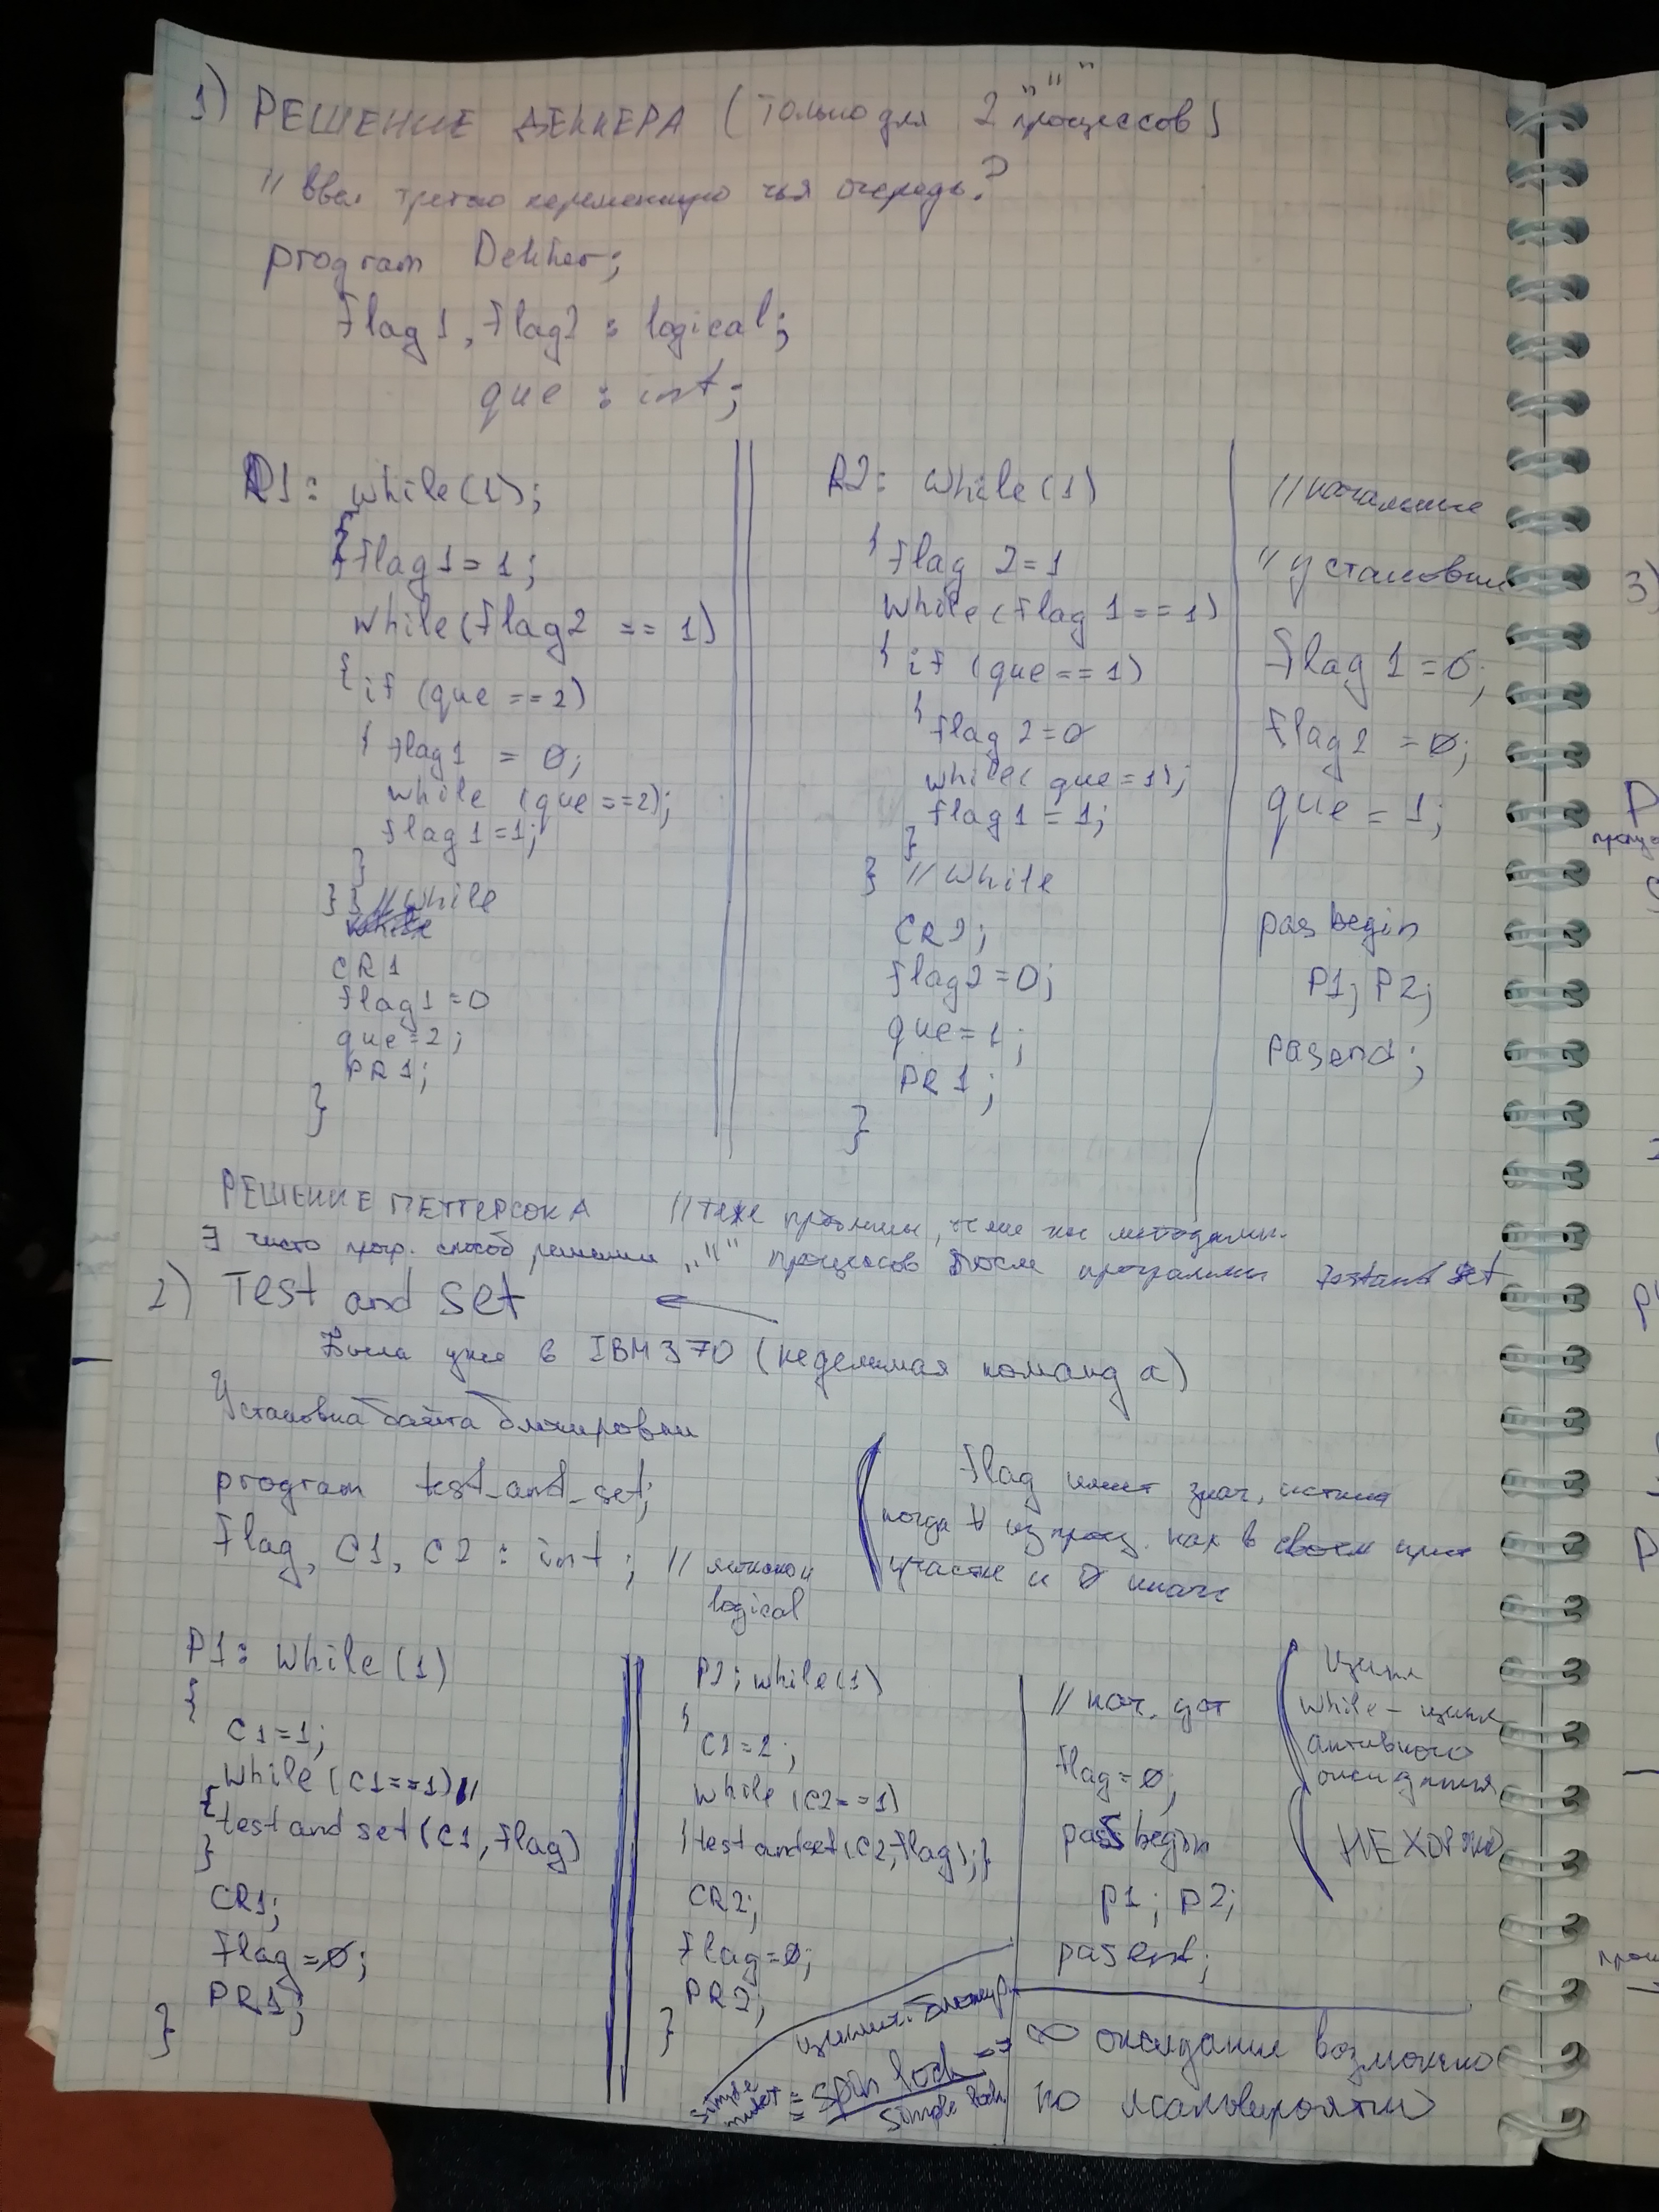 1) РЕШЕНИЕ ДЕККЕРА (только для 2 процессов)
// Ввел третью переменную чья очередь?
program Dekker;
Flag1, Flag2 : logical;
que : int;
P1: while(1);
{
Flag1 = 1;
while(Flag2 == 1)
{ if (que == 2)
{ Flag1 = 0;
while (que == 2);
flag1 = 1;
}
} } // while
CR1
flag1 = 0
que = 2;
PR1;
}
P2: while(1)
{ flag 2 = 1
while(flag 1 == 1)
{ if (que == 1)
{ flag 2 = 0
while( que = 1);
flag1 = 1;
}
} // while
CR2;
flag2 = 0;
que = 1;
PR1;
}
// начальные
// установки
flag 1 = 0;
flag2 = 0;
que = 1;
parbegin
P1; P2;
parend;
РЕШЕНИЕ ПЕТТЕРСОНА // теже
∃ чисто прогр. способ решения "" процессов после программы Test and Set
2) Test and Set
Была уже в IBM 370 (неделимая команда)
Установка байта блокировки
program test_and_set;
Flag, C1, C2 : int; //
logical
Flag имеет знач. истина
когда ∀ из проц. нах в своем крит
участке и 0 иначе
P1: while(1)
{
C1 = 1;
while(C1 == 1)
{
test and set(C1, Flag)
}
CR1;
Flag = 0;
PR1;
}
P2: while(1)
{
C2 = 1;
while (C2 == 1)
{ test and set(C2, Flag); }
CR2;
Flag = 0;
PR2;
}
// нач. уст
flag = 0;
parbegin
P1; P2;
parend;
Цикл
while - цикл
активного
ожидания
НЕ ХОРОШО
циклич. блокир.
simple mutex = spin lock =>
simple lock
∞ ожидание возможно
но маловероятно